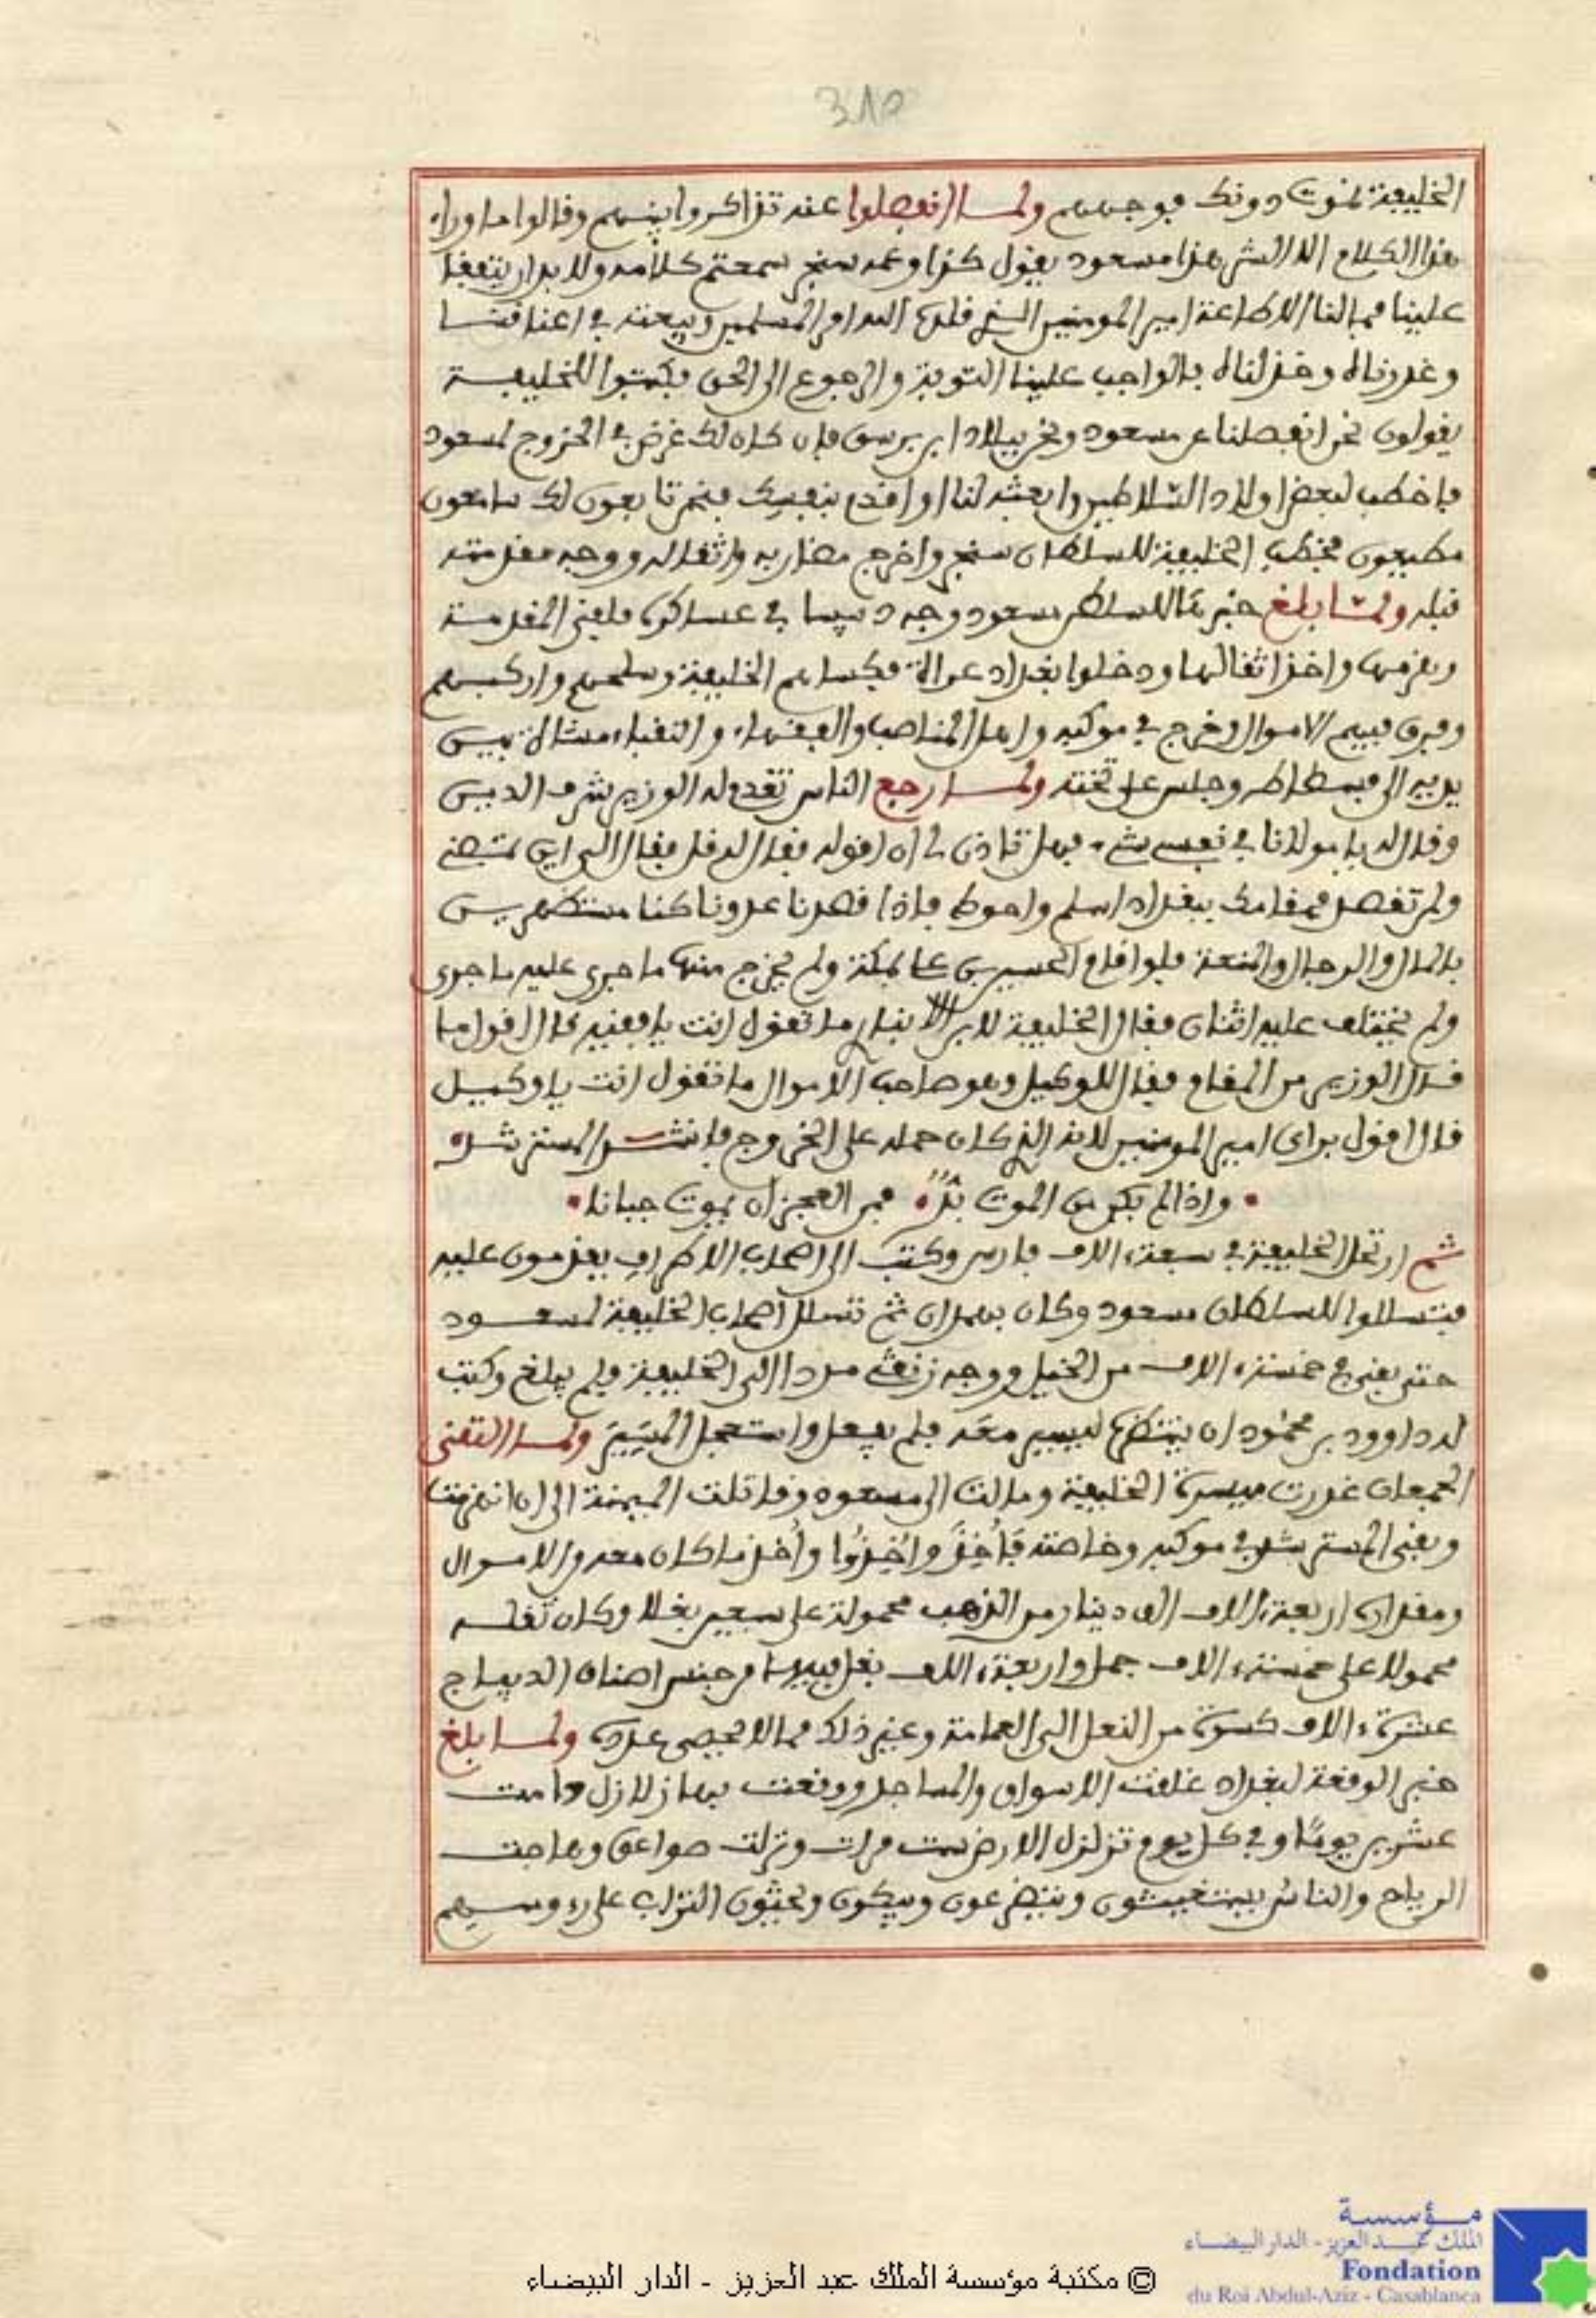 315
الخليفة لنموت دونك فوجههم ولما انفصلوا عنه تذاكروا بينهم وقالوا ما وراء
هذا الكلام الا الشر هذا مسعود يقول كذا وعمه سنجر سمعتم كلامه ولا بد ان يتفقا
علينا فما لنا الا طاعة امير المومنين الذي قلده الله امر المسلمين وبيعته في اعناقنا
وغدرناه وخذلناه فالواجب علينا التوبة والرجوع الى الحق فكتبوا للخليفة
يقولون نحن انفصلنا عن مسعود ونحن ببلاد ابن برسق فان كان لك غرض في الخروج لمسعود
فاخطب لبعض اولاد السلاطين وابعثه لنا او اقدم بنفسك فنحن تابعون لك سامعون
مطيعون فخطب الخليفة للسلطان سنجر واخرج مضاربه واثقاله ووجه مقدمته
قبله ولما بلغ خبرها للسلطان مسعود وجه دبيسا في عساكره فلقي المقدمة
وهزمها واخذ اثقالها ودخلوا بغداد عراة فكساهم الخليفة وسلحهم واركبهم
وفرق فيهم الاموال وخرج في موكبه واهل المناصب والفقهاء والنقباء مشاة بين
يديه الى فسطاطه وجلس على تخته ولما رجع الناس تقدم له الوزير شرف الدين
وقال له يا مولانا في نفسي شيء فهل تاذن لي ان اقوله فقال له قل فقال الى اين تمضي
ولم تقصد فمقامك ببغداد اسلم واحوط فاذا قصدنا عدونا كنا مستظهرين
بالمال والرجال والمنعة فلو اقام الحسين بن علي بمكة ولم يخرج منها ما جرى عليه ما جرى
ولم يختلف عليه اثنان فقال الخليفة لابن الانباري ما تقول انت يا فقيه قال اقول ما
قال الوزير من المقام فقال للوكيل وهو صاحب الاموال ما تقول انت يا وكيل
قال اقول براي امير المومنين لانه الذي كان حمله على الخروج فانشد المسترشد
• واذا لم يكن من الموت بدٌّ • فمن العجز ان تموت جبانا •
ثم ارتحل الخليفة في سبعة ءالاف فارس وكتب الى اصحاب الاطراف يقدمون عليه
فتسللوا للسلطان مسعود وكان بهمدان ثم تسلل اصحاب الخليفة لمسعود
حتى بقي في خمسة ءالاف من الخيل ووجه زنقي مددا الى الخليفة فلم يبلغ وكتب
له داوود بن محمود ان ينتظره ليسير معه فلم يفعل واستعجل المسير ولما التقى
الجمعان غدرت ميسرة الخليفة ومالت الى مسعود وقاتلت الميمنة الى ان انهزمت
وبقي المسترشد في موكبه وخاصته فأُخِذَ وأُخِذُوا وأُخذ ما كان معه من الاموال
ومقداره اربعة ءالاف الف دينار من الذهب محمولة على سبعين بغلا وكان ثقله
محمولا على خمسة ءالاف جمل واربعة ءالاف بغل فيها من جنس اصناف الديباج
عشرة ءالاف كسوة من النعل الى العمامة وغير ذلك مما لا يحصى عدده ولما بلغ
خبر الوقعة لبغداد غلقت الاسواق والمساجد ووقعت بها زلازل دامت
عشرين يوما وفي كل يوم تزلزل الارض ست مرات ونزلت صواعق وهاجت
الرياح والناس يستغيثون ويتضرعون ويبكون ويحثون التراب على رءوسهم
© مكتبة مؤسسة الملك عبد العزيز - الدار البيضاء
مؤسسة
الملك عبد العزيز - الدار البيضاء
Fondation
du Roi Abdul-Aziz - Casablanca